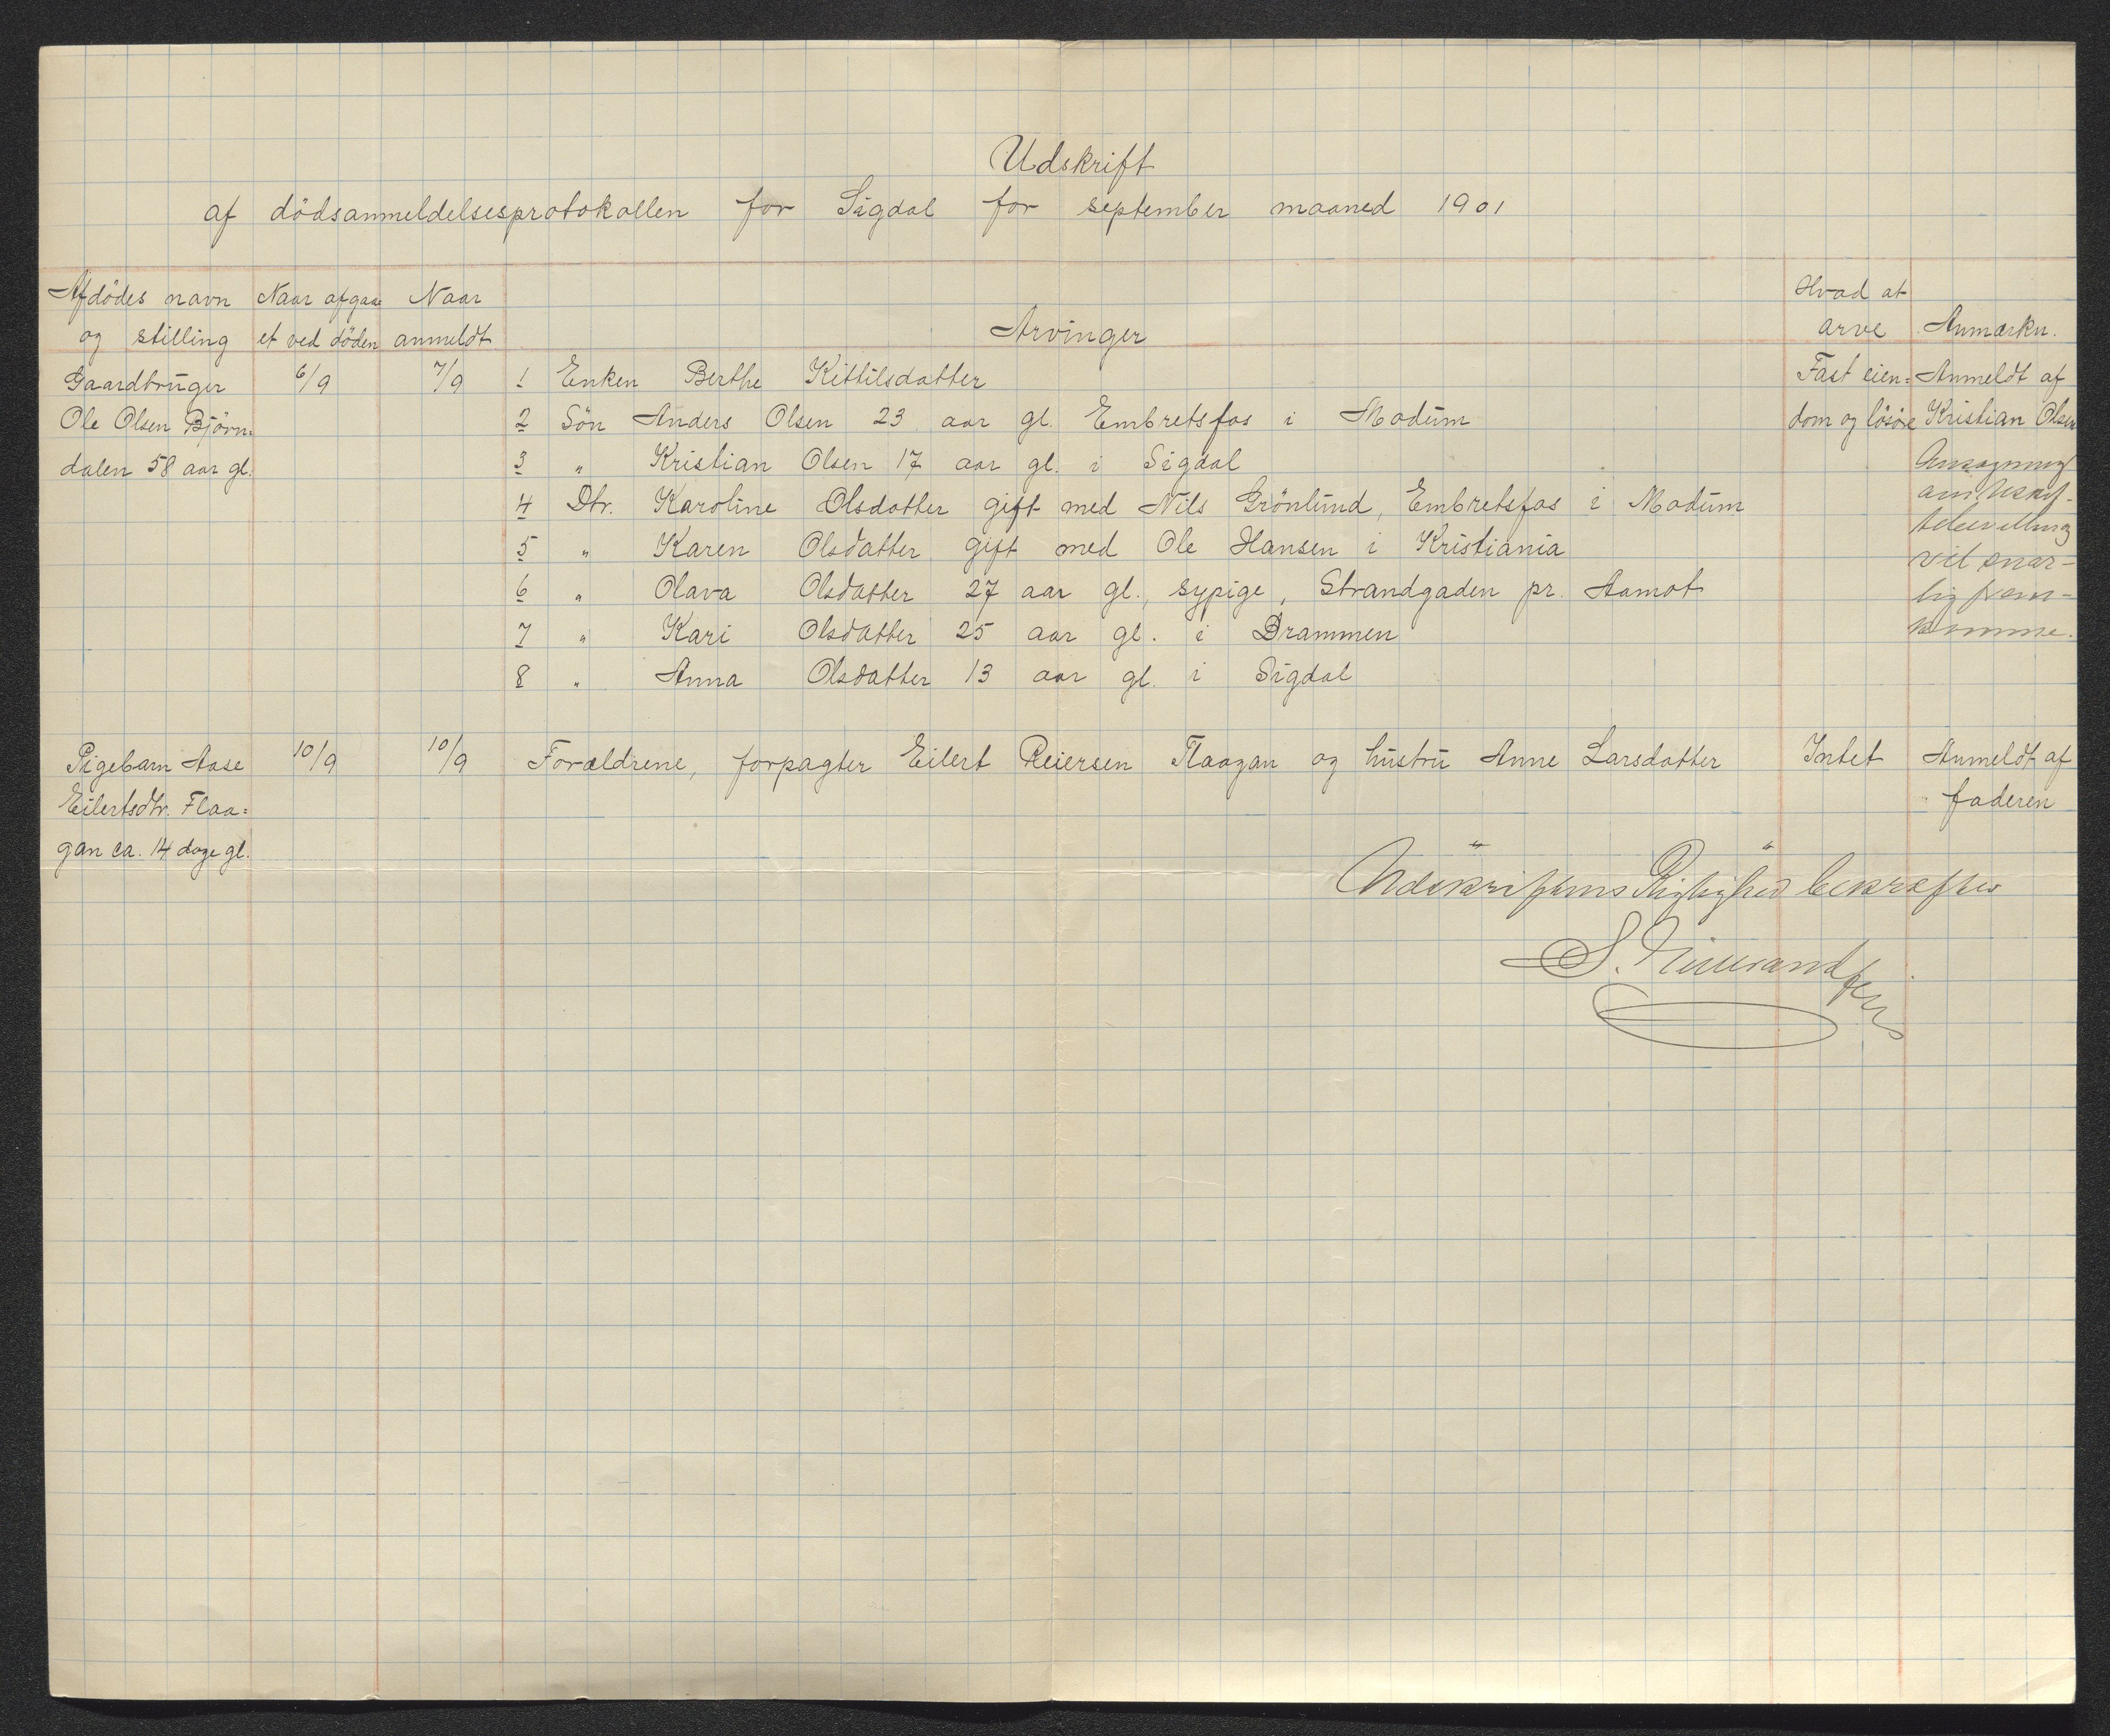 Udskrift
af dödsanmeldelsesprotokollen for Sigdal for september maaned 1901
Afdödes navn og stilling
Naar afgaaet ved döden
Naar anmeldt
Arvinger
Hvad at arve
Anmærkn.
Gaardbruger
Ole Olsen Björn=
dalen 58 aar gl.
6/9
7/9
1 Enken Berthe Kittilsdatter
2 Sön Anders Olsen 23 aar gl. Embretsfos i Modum
3 " Kristian Olsen 17 aar gl. i Sigdal
4 Dtr. Karoline Olsdatter gift med Nils Grönlund, Embretsfos i Modum
5 " Karen Olsdatter gift med Ole Hansen i Kristiania
6 " Olava Olsdatter 27 aar gl., sypige, Strandgaden pr. Aamot
7 " Kari Olsdatter 25 aar gl. i Drammen
8 " Anna Olsdatter 13 aar gl. i Sigdal
Fast eien=
dom og lösöre
Anmeldt af
Kristian Olsen
Ansögning
om uskif-
tebevilling
vil snar-
lig frem-
komme.
Pigebarn Aase
Eilertsdtr. Flaa=
gan ca. 14 dage gl.
10/9
10/9
Forældrene, forpagter Eilert Reiersen Flaagan og hustru Anne Larsdatter
Intet
Anmeldt af
faderen
" "
Udskriftens Rigtighed bekræftes
S.